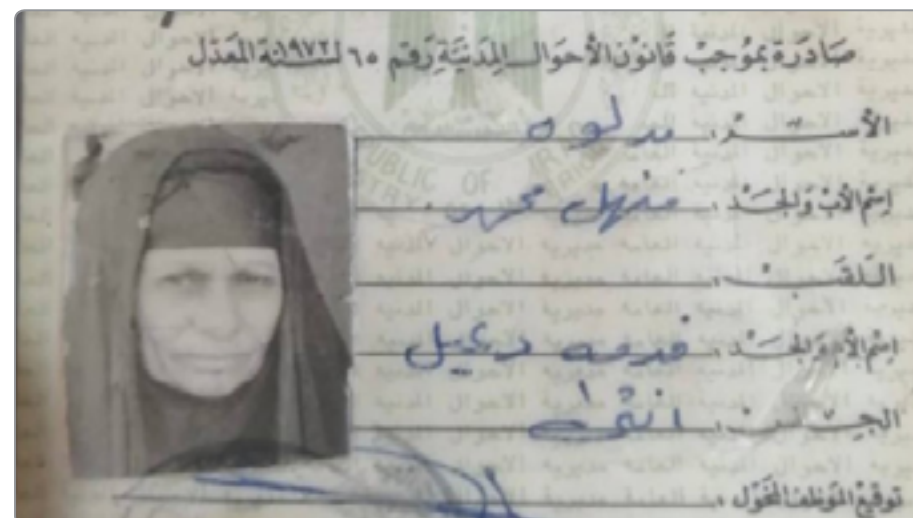 صادرة بموجب قانون الأحوال المدنية رقم ٦٥ لسنة ١٩٧٢ المعدل
الأسم: مدلوه
إسم الأب والجد: منهل محمد
اللقب:
إسم الأم والجد: دعيل
الجنس: انثى
توقيع الموظف المخول:
REPUBLIC OF IRAQ